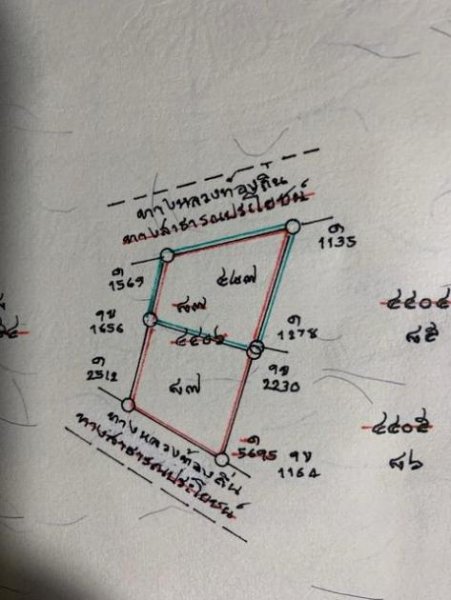 ทางหลวงท้องถิ่น
ทางสาธารณประโยชน์
ด
1135
ด
1569
๘๗
ขข
1656
ด
1278
ขข
2230
ด
2512
๘๗
๔๔๐๔
๘๕
๔๔๐๕
๘๖
ทางหลวงท้องถิ่น
ทางสาธารณประโยชน์
ด
5695
ขข
1164